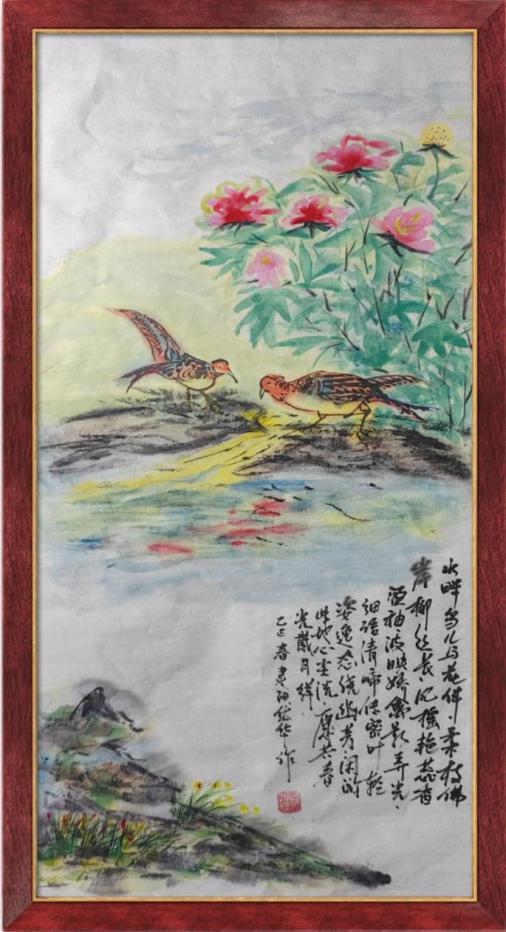 水畔鸟儿与花伴柔枝拂
岸柳丝长风摇艳蕊香
盈袖波映娇禽影弄光
细语清啼传密叶轻
姿逸态绕幽芳闲游
此地心尘洗愿共春
光戴月
乙巳春 作